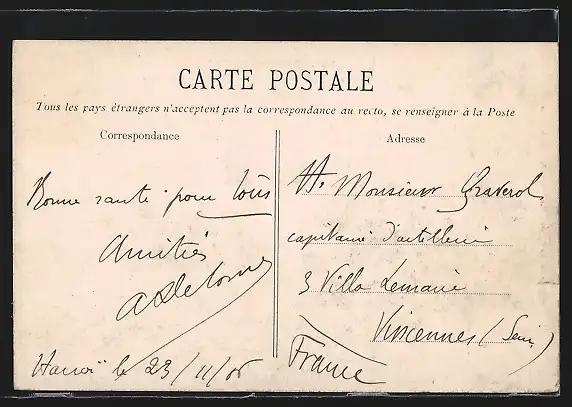 CARTE POSTALE
Tous les pays étrangers n'acceptent pas la correspondance au recto, se renseigner à la Poste
Correspondance
Bonne santé pour tous
Amitiés
Hanoï le 23/11/06
Adresse
Monsieur Graverol
capitaine d'artillerie
3 Villa Lemaire
Vincennes (Seine)
France